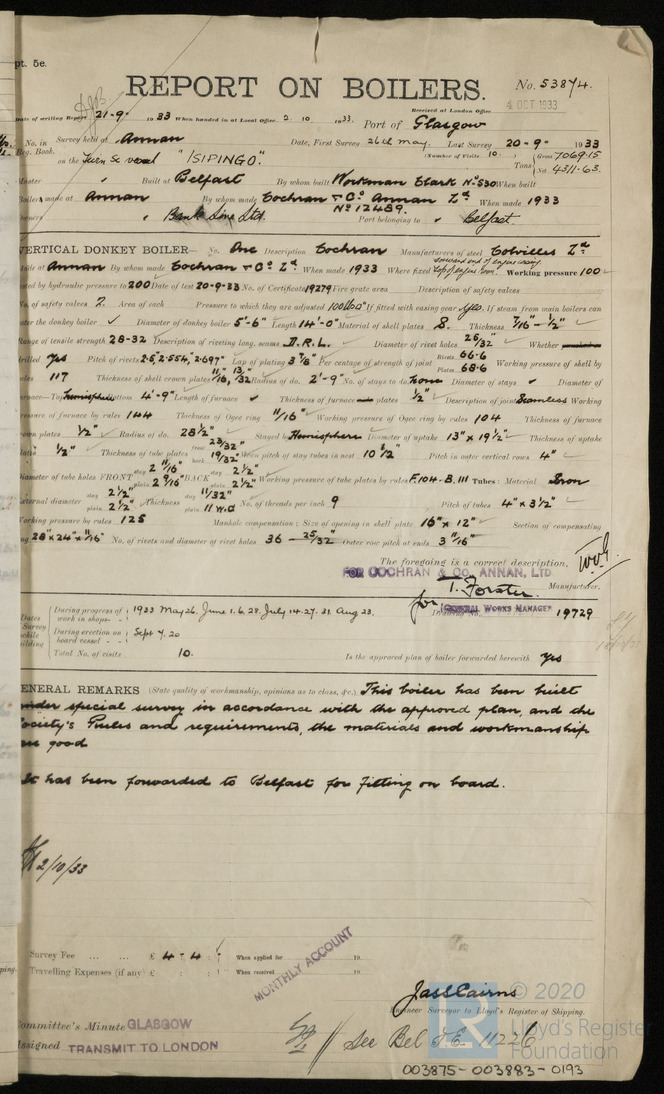 pt. 5e.
REPORT ON BOILERS.
No. 53874.
4 OCT 1933
Received at London Office
Date of writing Report 21-9- 1933 When handed in at Local Office 2. 10 1933. Port of Glasgow
No. in Survey held at Annan Date, First Survey 26th May. Last Survey 20-9- 1933
Reg. Book. (Number of Visits 10.)
on the "ISIPINGO." Tons Gross 7069.15 Net 4311.63.
Master Built at Belfast By whom built Workman Clark No 530 When built
Boilers made at Annan By whom made Cochran & Co Annan Ld No 12489. When made 1933
Owners Bank Line Ltd. Port belonging to Belfast.
VERTICAL DONKEY BOILER— No. One Description Cochran Manufacturers of steel Colvilles Ld
Made at Annan By whom made Cochran & Co Ld When made 1933 Where fixed Working pressure 100
tested by hydraulic pressure to 200 Date of test 20-9-33 No. of Certificate 19279 Fire grate area Description of safety valves
No. of safety valves 2. Area of each Pressure to which they are adjusted 100 lbs If fitted with easing gear Yes. If steam from main boilers can
enter the donkey boiler Diameter of donkey boiler 5'-6" Length 14'-0" Material of shell plates S. Thickness 7/16"-1/2"
Range of tensile strength 28-32 Description of riveting long. seams D.R.L. Diameter of rivet holes 25/32" Whether
drilled Yes Pitch of rivets 2.5", 2.554", 2.697" Lap of plating 3 7/8" Per centage of strength of joint Rivets 66.6 Plates 68.6 Working pressure of shell by
rules 117 Thickness of shell crown plates 11/16", 13/32" Radius of do. 2'-9" No. of stays to do. None Diameter of stays Diameter of
furnace—Top Hemisphere Bottom 4'-9" Length of furnace Thickness of furnace plates 1/2" Description of joint Seamless Working
pressure of furnace by rules 144 Thickness of Ogee ring 11/16" Working pressure of Ogee ring by rules 104 Thickness of furnace
crown plates 1/2" Radius of do. 28 1/2" Stayed by Hemisphere Diameter of uptake 13" x 19 1/2" Thickness of uptake
plates 1/2" Thickness of tube plates front 23/32" back 19/32" Mean pitch of stay tubes in nest 10 1/2" Pitch in outer vertical rows 4"
Diameter of tube holes FRONT stay 2 11/16" plain 2 9/16" BACK stay 2 1/2" plain 2 1/2" Working pressure of tube plates by rules F.104. B.111 Tubes: Material Iron
External diameter stay 2 1/2" plain 2 1/2" Thickness stay 11/32" plain 11 W.G No. of threads per inch 9 Pitch of tubes 4" x 3 1/2"
Working pressure by rules 125 Manhole compensation: Size of opening in shell plate 16" x 12" Section of compensating
ring 28" x 24" x 11/16" No. of rivets and diameter of rivet holes 36 - 25/32" Outer row pitch at ends 3 11/16"
The foregoing is a correct description,
FOR COCHRAN & CO. ANNAN, LTD
T. Forster. Manufacturer.
for GENERAL WORKS MANAGER
19729
Dates of Survey while building
During progress of work in shops - - 1933 May 26. June 1. 6. 28. July 14. 27. 31. Aug 23.
During erection on board vessel - - - Sept 7. 20
Total No. of visits 10. Is the approved plan of boiler forwarded herewith Yes
GENERAL REMARKS (State quality of workmanship, opinions as to class, &c.) This boiler has been built
under special survey in accordance with the approved plan, and the
Society's Rules and requirements, the materials and workmanship
are good
It has been forwarded to Belfast for fitting on board.
2/10/33
Survey Fee ... ... £ 4 - 4 : When applied for 19
Travelling Expenses (if any) £ : : When received 19
MONTHLY ACCOUNT
Jas Cairns
Engineer Surveyor to Lloyd's Register of Shipping.
Committee's Minute GLASGOW
Assigned TRANSMIT TO LONDON
See Bel F.E. 11226
© 2020
Lloyd's Register
Foundation
003875-003883-0193